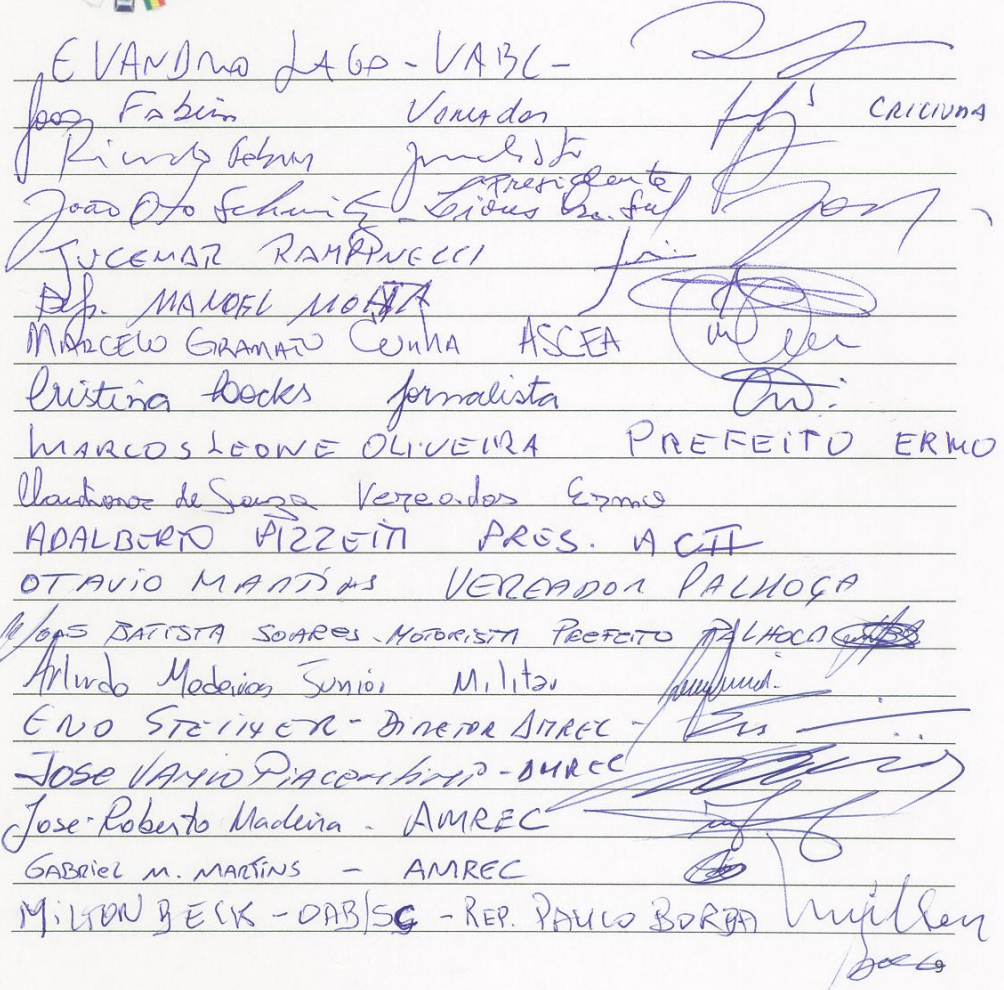 EVANDRO LAGO - VABC -
João Fabris Vereador CRICIUMA
Ricardo jornalista
presidente
João Oto Schmitz - Lions Sul
JUCEMAR RAMPINELLI
Dep. MANOEL MOTA
MARCELO GRAMATO CUNHA ASCEA
Cristina Loocks jornalista
MARCOS LEONE OLIVEIRA PREFEITO ERMO
de Souza Vereador Ermo
ADALBERTO PIZZETTI PRES. ACII
OTAVIO MARTINS VEREADOR PALHOÇA
JOÃO BATISTA SOARES - MOTORISTA PREFEITO PALHOCA
Arlindo Medeiros Junior Militar
ENO STEINER - DIRETOR AMREC -
JOSE VANIO PIACENTINI - AMREC
José Roberto Madeira - AMREC
GABRIEL M. MARTINS - AMREC
MILTON BECK - OAB/SC - REP. PAULO BORBA
9